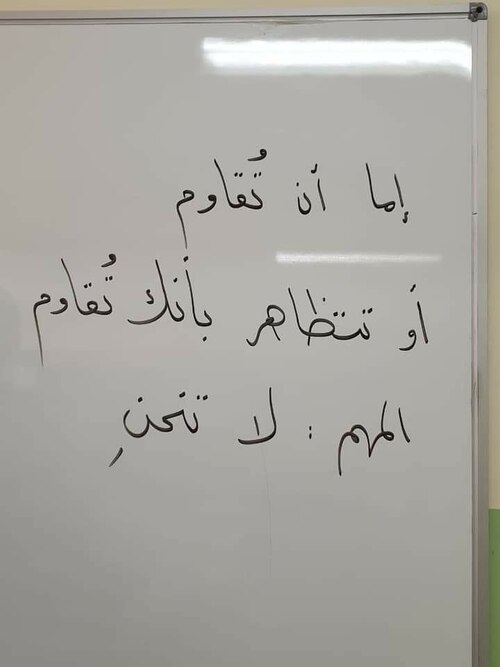 إما أن تُقاوم
أو تتظاهر بأنك تُقاوم
المهم : لا تنحنِ